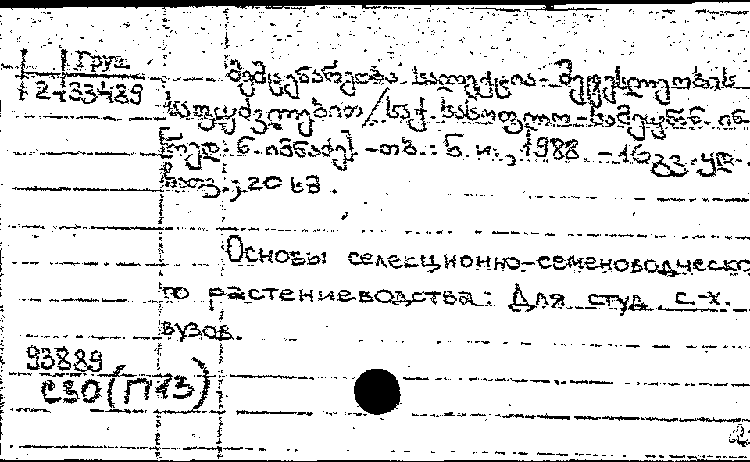 Груз.
2-33489
მემცენარეობა სელექცია-მეთესლეობის
საფუძვლებით/საქ. სასოფლო-სამეურნ. ინ
[რედ. ნ. იმნაძე]. -თბ.: ნ. ი., 1988 - 16გვ.
20 სმ.
Основы селекционно-семеноводческо
го растениеводства: Для студ. с-х.
вузов.
93889
СЗО (П13)